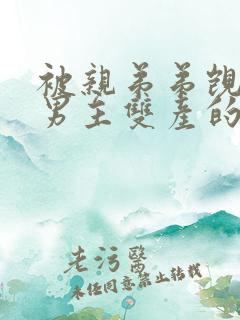 被親弟弟覬
男主雙產的
老污醫
未任同意禁止转载